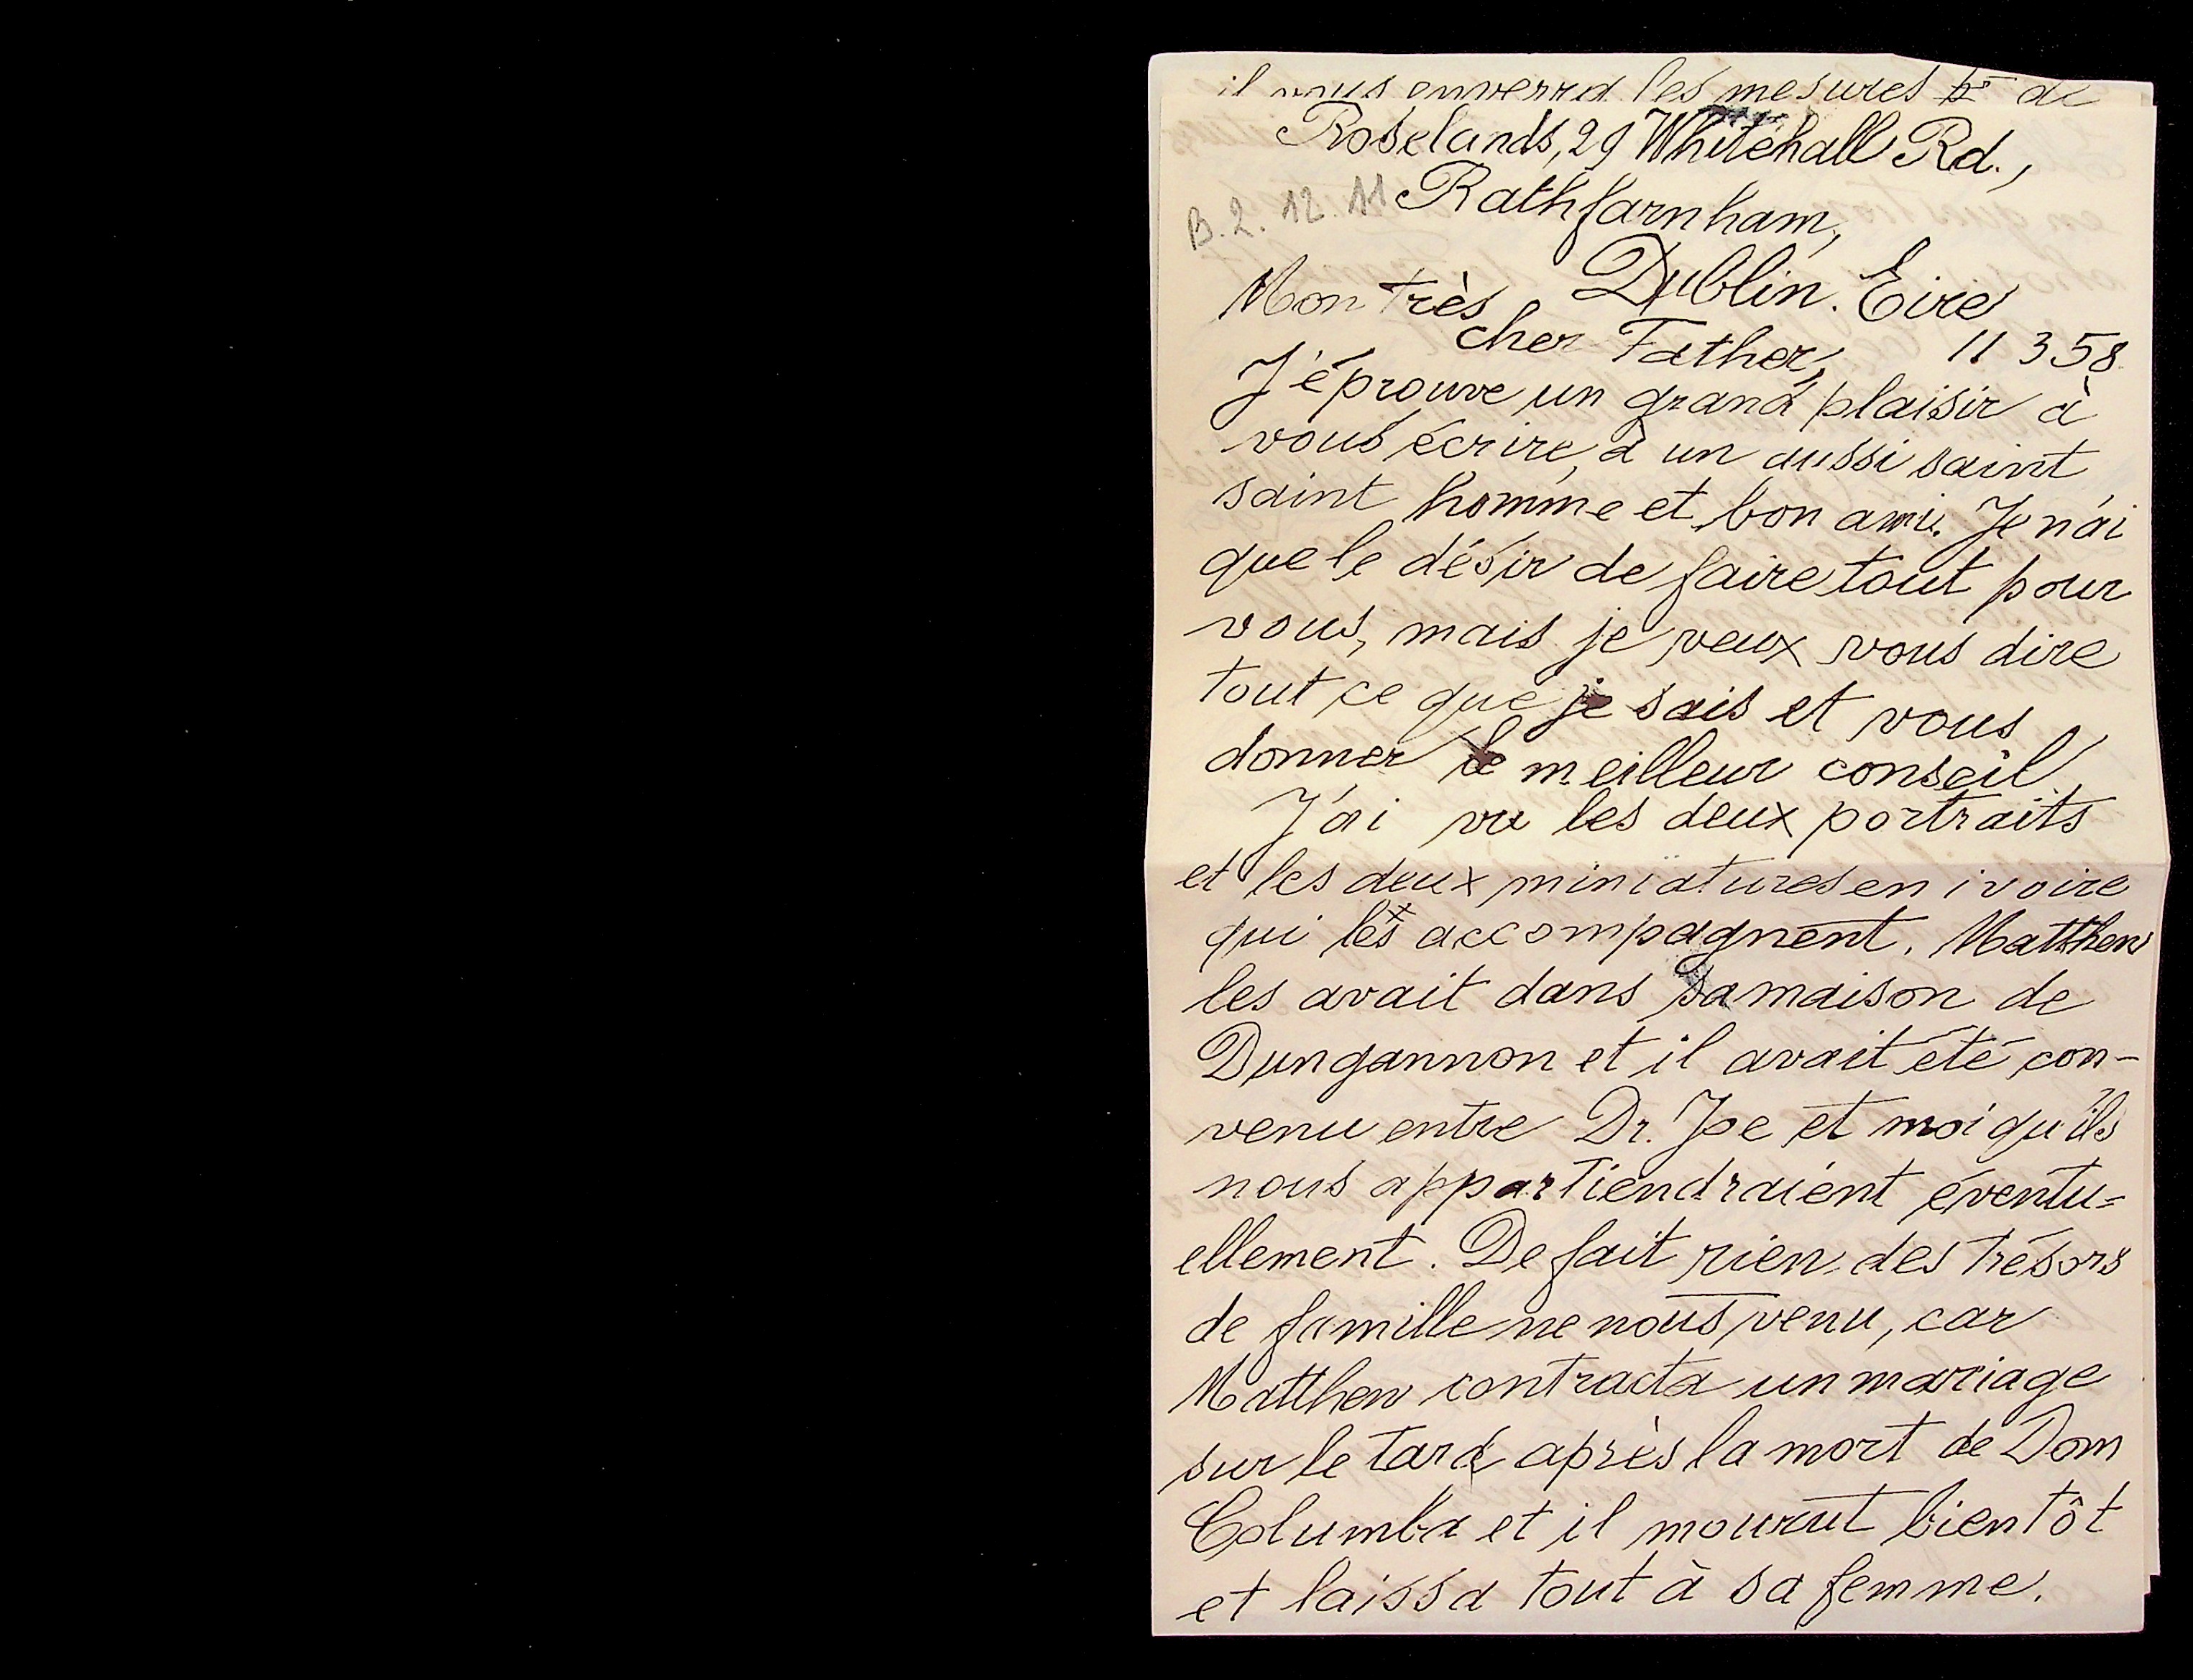 il vous enverra les mesures de
Roselands, 29 Whitehall Rd.,
B. 2. 12. 11 Rathfarnham,
Dublin. Eire
Mon très
cher Father, 11 3 58
J'éprouve un grand plaisir à
vous écrire, à un aussi saint
saint homme et bon ami. Je n'ai
que le désir de faire tout pour
vous, mais je veux vous dire
tout ce que je sais et vous
donner le meilleur conseil.
J'ai vu les deux portraits
et les deux miniatures en ivoire
qui les accompagnent. Matthew
les avait dans sa maison de
Dungannon et il avait été con-
venu entre Dr. Joe et moi qu'ils
nous appartiendraient éventu=
ellement. De fait rien des trésors
de famille ne nous venu, car
Matthew contracta un mariage
sur le tard après la mort de Dom
Columba et il mourut bientôt
et laissa tout à sa femme.